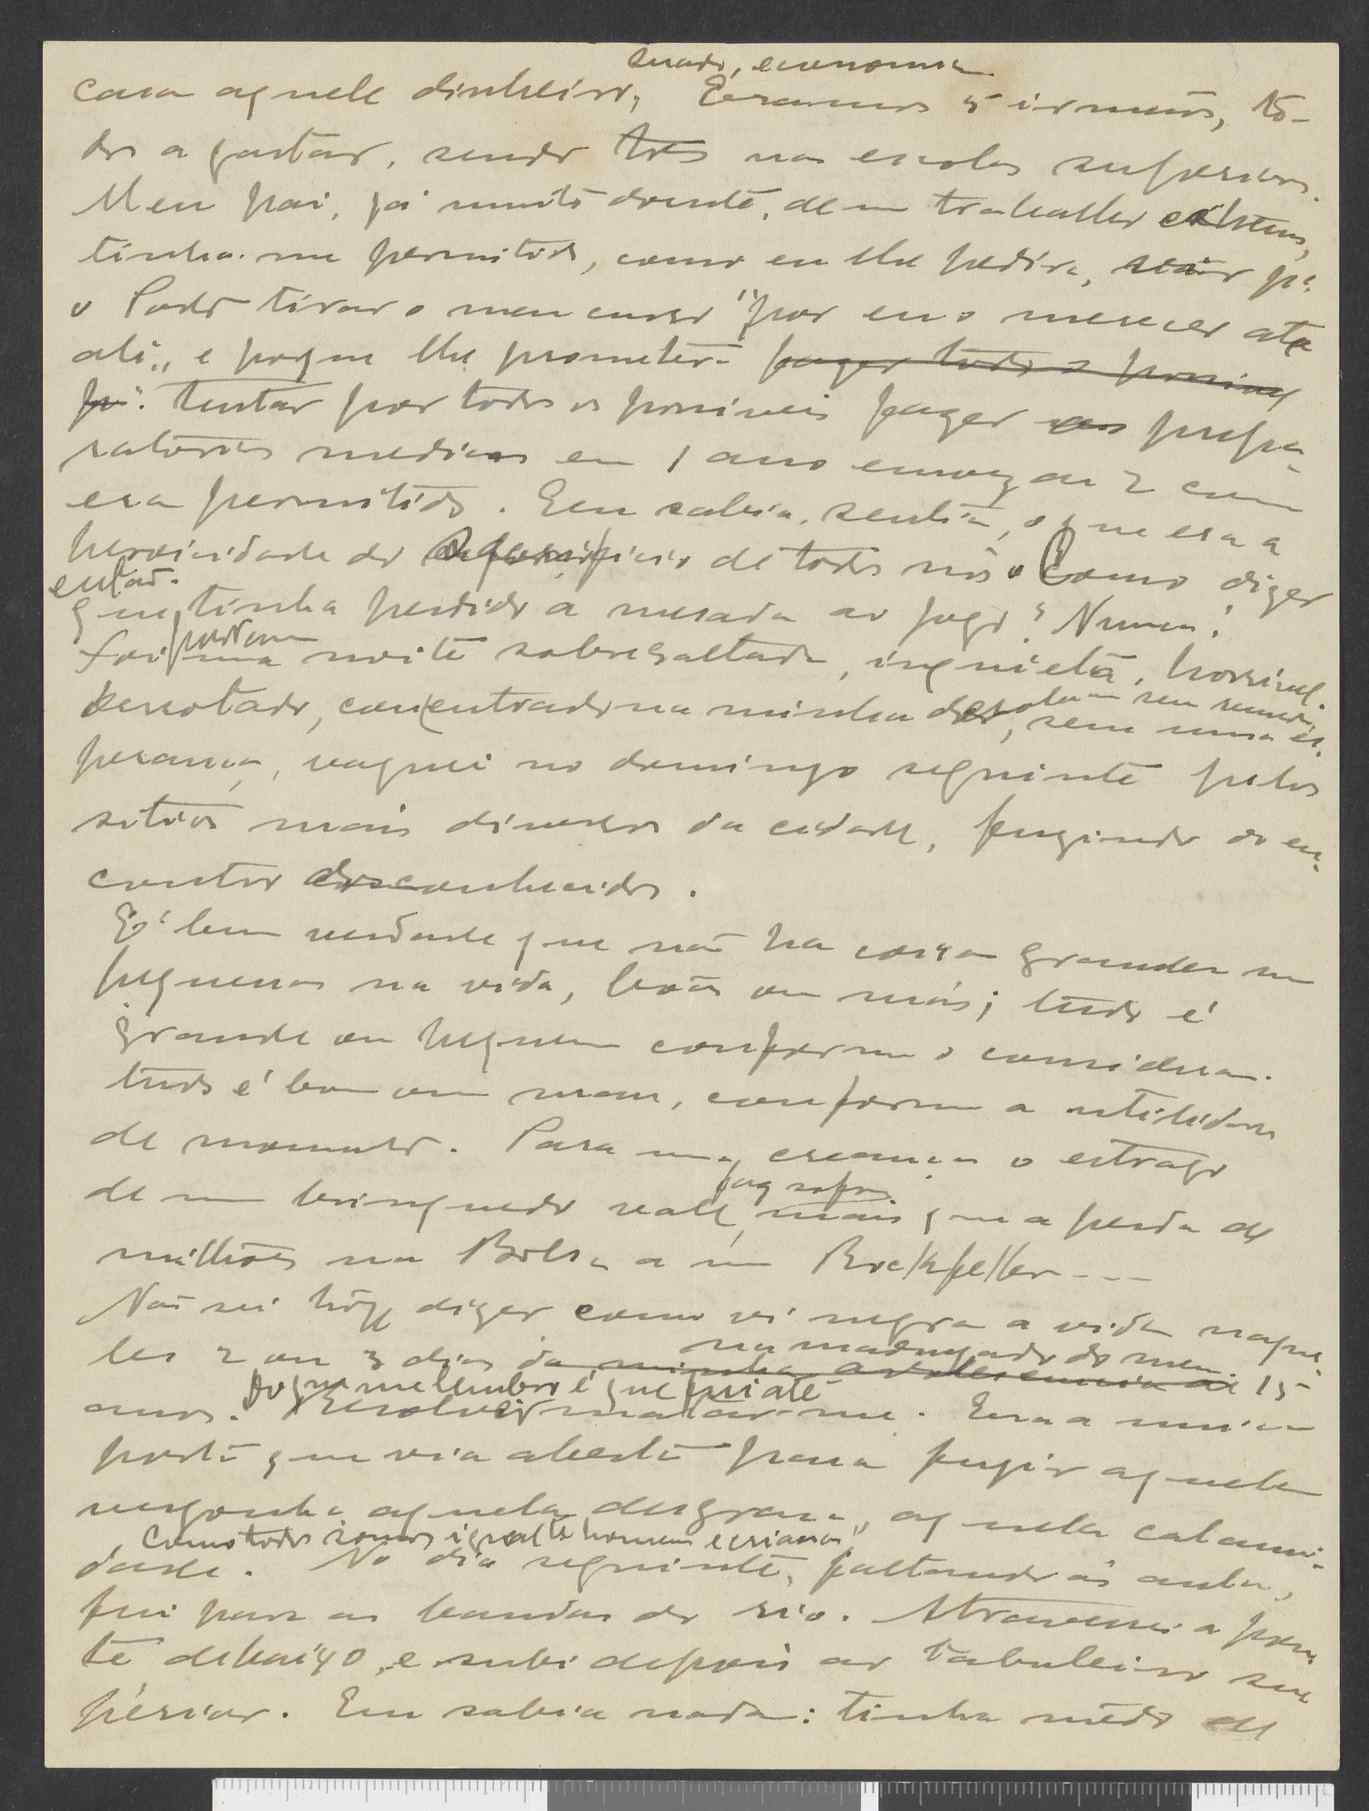 suado, economia
casa aquele dinheiro, Eramos 5 irmãos, to-
dos a gastar, sendo tres nas escolas superiores.
Meu pai, já muito doente, de um trabalho
tinha-me permitido, como eu lhe pedira, para
o Porto tirar o meu curso "por eu o merecer até
ali", e porque lhe prometera fazer todo o possivel
pª. tentar por todos os possiveis fazer os prepa-
ratorios medicos em 1 ano em vez de 2 como
era permitido. Eu sabia, sentia, o que era a
heroicidade do sacrificio de todos nós. Como dizer
então
que tinha perdido a mesada ao jogo? Nunca!
portanto
Foi uma noite sobresaltada, inquieta, horrivel.
sem remedio,
Derrotado, concentrado na minha dor, sem uma es-
perança, vaguei no domingo seguinte pelos
sitios mais diversos da cidade, fugindo ao en-
contro de conhecidos.
É bem verdade que não ha coisas grandes nem
pequenas na vida, boas ou más; tudo é
grande ou pequeno conforme o consideram.
tudo é bom ou mau, conforme a utilidade
de momento. Para uma creança o estrago
faz sofrer
de um brinquedo vale mais que a perda de
milhões na Bolsa a um Rockfeller---
Não sei hoje dizer como vi negra a vida naque-
na madrugada dos meus
les 2 ou 3 dias da minha adolescencia de 15
Do que me lembro é que fui até
anos. Resolver matar-me. Era a unica
porta que via aberta para fugir aquela
vergonha aquela desgraça, aquela calami-
Como todos somos iguais homem e criança
dade. No dia seguinte, faltando ás aulas,
fui para as bandas do rio. Atravessei a pon-
te debaixo, e subi depois ao taboleiro su-
perior. Eu sabia nadar: tinha mêdo de